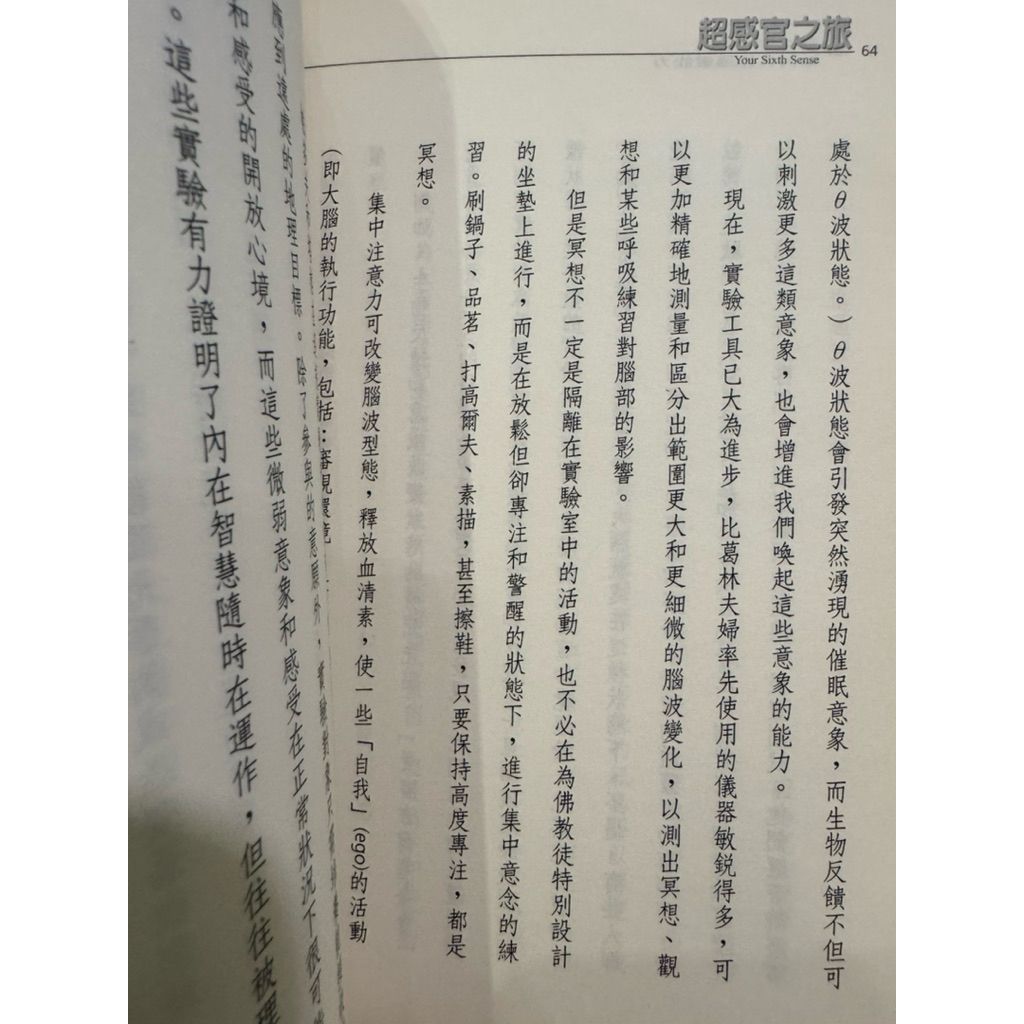 超感官之旅
Your Sixth Sense
64
處於θ波狀態。）θ波狀態會引發突然湧現的催眠意象，而生物反饋不但可
以刺激更多這類意象，也會增進我們喚起這些意象的能力。
現在，實驗工具已大為進步，比葛林夫婦率先使用的儀器敏銳得多，可
以更加精確地測量和區分出範圍更大和更細微的腦波變化，以測出冥想、觀
想和某些呼吸練習對腦部的影響。
但是冥想不一定是隔離在實驗室中的活動，也不必在為佛教徒特別設計
的坐墊上進行，而是在放鬆但卻專注和警醒的狀態下，進行集中意念的練
習。刷鍋子、品茗、打高爾夫、素描，甚至擦鞋，只要保持高度專注，都是
冥想。
集中注意力可改變腦波型態，釋放血清素，使一些「自我」(ego)的活動
（即大腦的執行功能，包括：審視環境
應到遠處的地理目標。除了參與的意願外，實驗對象只
和感受的開放心境，而這些微弱意象和感受在正常狀況下很可
。這些實驗有力證明了內在智慧隨時在運作，但往往被理